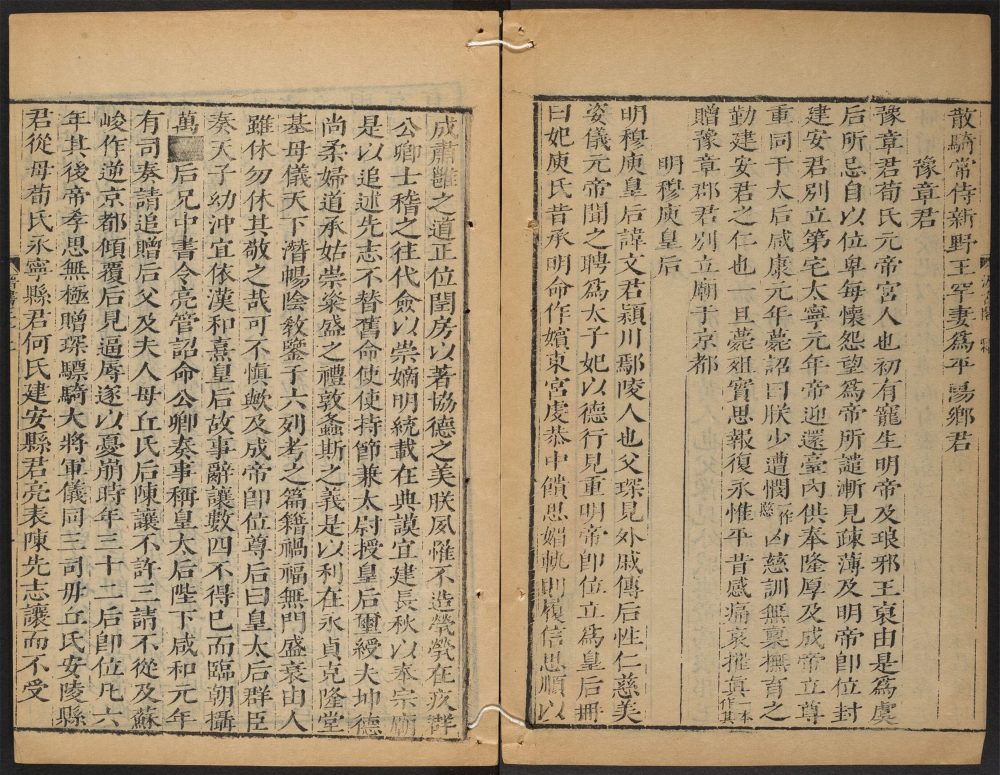 散騎常侍新野王罕妻爲平陽鄉君
豫章君
豫章君荀氏元帝宮人也初有寵生明帝及琅邪王裒由是爲虞
后所忌自以位卑每懷怨望爲帝所譴漸見疎薄及明帝卽位封
建安君別立第宅太寧元年帝迎還臺內供奉隆厚及成帝立尊
重同于太后咸康元年薨詔曰朕少遭憫一作慜凶慈訓無稟撫育之
勤建安君之仁也一旦薨殂實思報復永惟平昔感痛哀摧其一本作其
贈豫章郡君別立廟于京都
明穆庾皇后
明穆庾皇后諱文君潁川鄢陵人也父琛見外戚傳后性仁慈美
姿儀元帝聞之聘爲太子妃以德行見重明帝卽位立爲皇后冊
曰妃庾氏昔承明命作嬪東宮虔恭中饋思媚軌則履信思順以
成肅雝之道正位閨房以著協德之美朕夙罹不造煢煢在疚群
公卿士稽之往代僉以崇嫡明統載在典謨宜建長秋以奉宗廟
是以追述先志不替舊命使使持節兼太尉授皇后璽綬夫坤德
尚柔婦道承姑崇粢盛之禮敦螽斯之義是以利在永貞克隆堂
基母儀天下潛暢陰敎鑒于六列考之篇籍禍福無門盛衰由人
雖休勿休其敬之哉可不慎歟及成帝卽位尊后曰皇太后群臣
奏天子幼沖宜依漢和熹皇后故事辭讓數四不得已而臨朝攝
萬后兄中書令亮管詔命公卿奏事稱皇太后陛下咸和元年
有司奏請追贈后父及夫人毋丘氏后陳讓不許三請不從及蘇
峻作逆京都傾覆后見逼辱遂以憂崩時年三十二后卽位凡六
年其後帝孝思無極贈琛驃騎大將軍儀同三司毋丘氏安陵縣
君從母荀氏永寧縣君何氏建安縣君亮表陳先志讓而不受